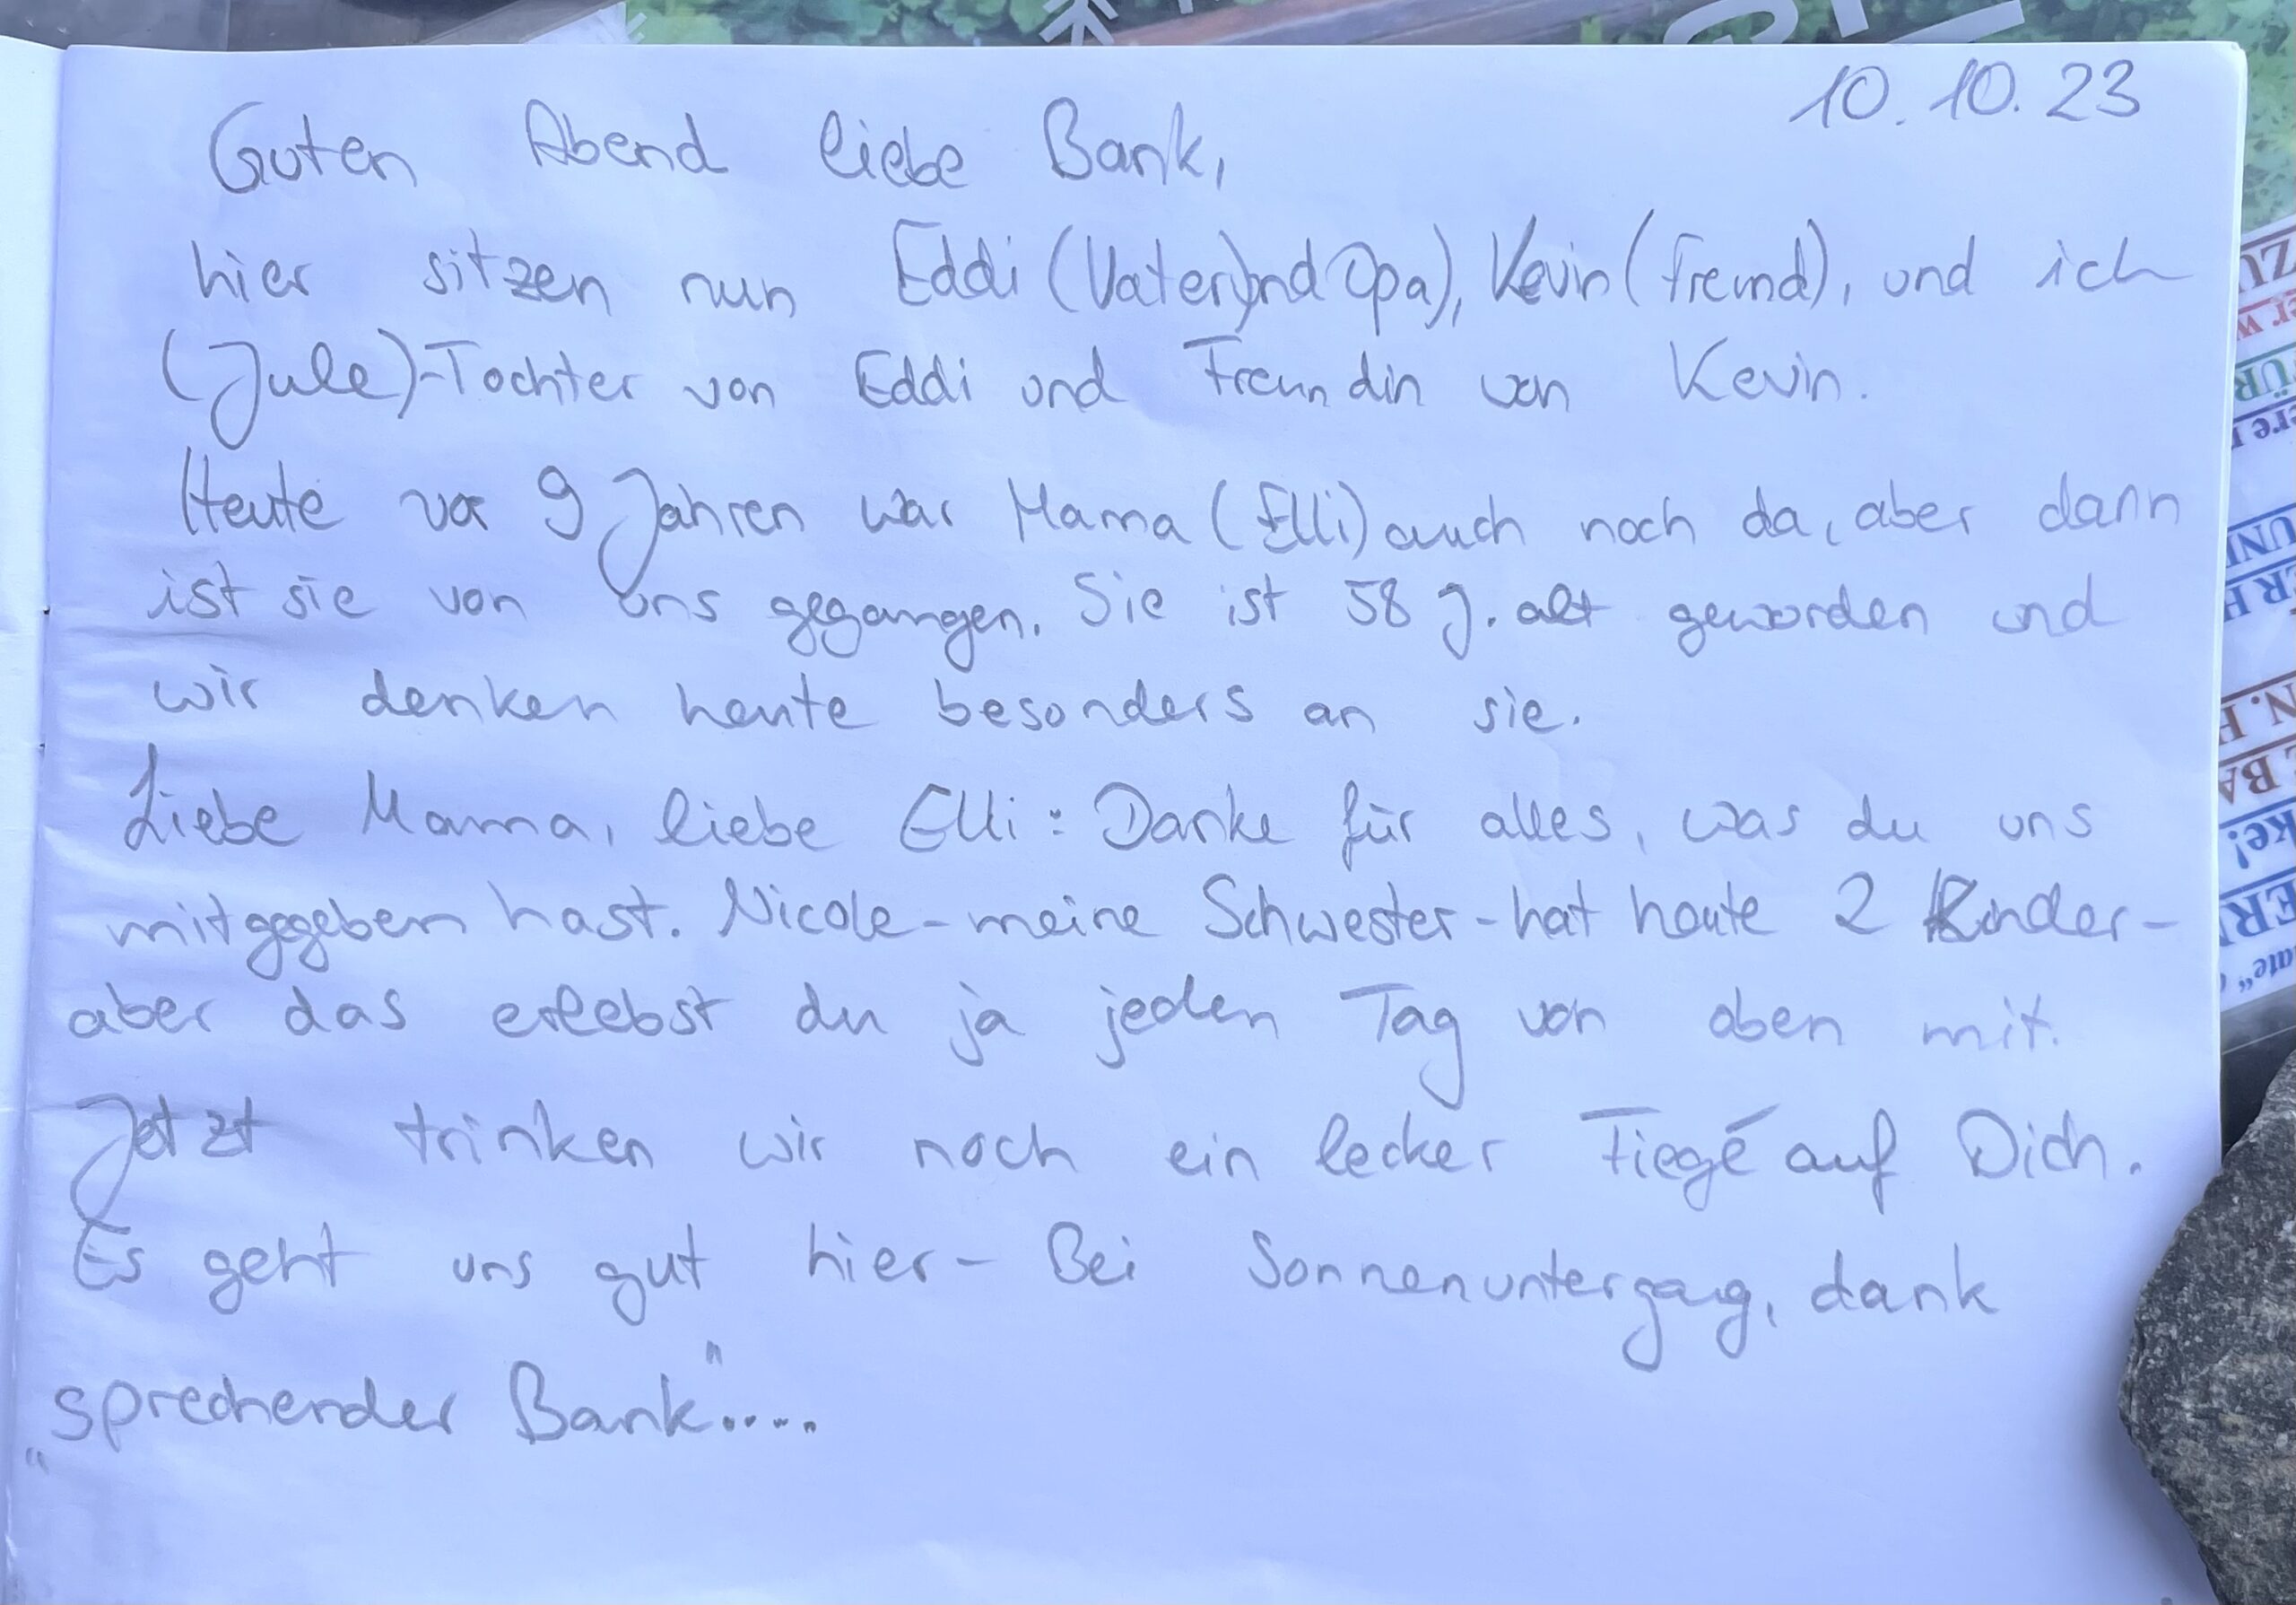 10.10.23
Guten Abend liebe Bank,
hier sitzen nun Eddi (Vater)und Opa), Kevin (Freund), und ich
(Jule)-Tochter von Eddi und Freundin von Kevin.
Heute vor 9 Jahren war Mama (Elli) auch noch da, aber dann
ist sie von uns gegangen. Sie ist 58 J. alt geworden und
wir denken heute besonders an sie.
Liebe Mama, liebe Elli: Danke für alles, was du uns
mitgegeben hast. Nicole-meine Schwester-hat heute 2 Kinder-
aber das erlebst du ja jeden Tag von oben mit.
Jetzt trinken wir noch ein lecker Fiegé auf Dich.
Es geht uns gut hier- Bei Sonnenuntergang, dank
„sprechender Bank"....